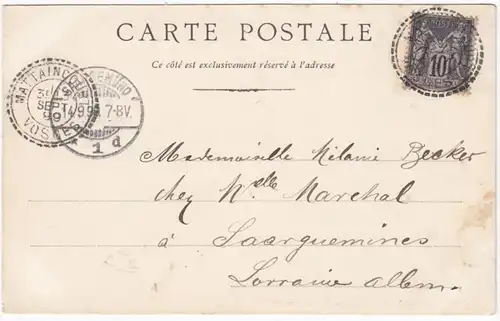 CARTE POSTALE
Ce côté est exclusivement réservé à l'adresse
10
MATTAINCOURT
SEPT
99
VOSGES
14.9.99 7-8V.
1 d
Mademoiselle Mélanie Becker
chez Mlle Marchal
à Saarguemines
Lorraine allem.